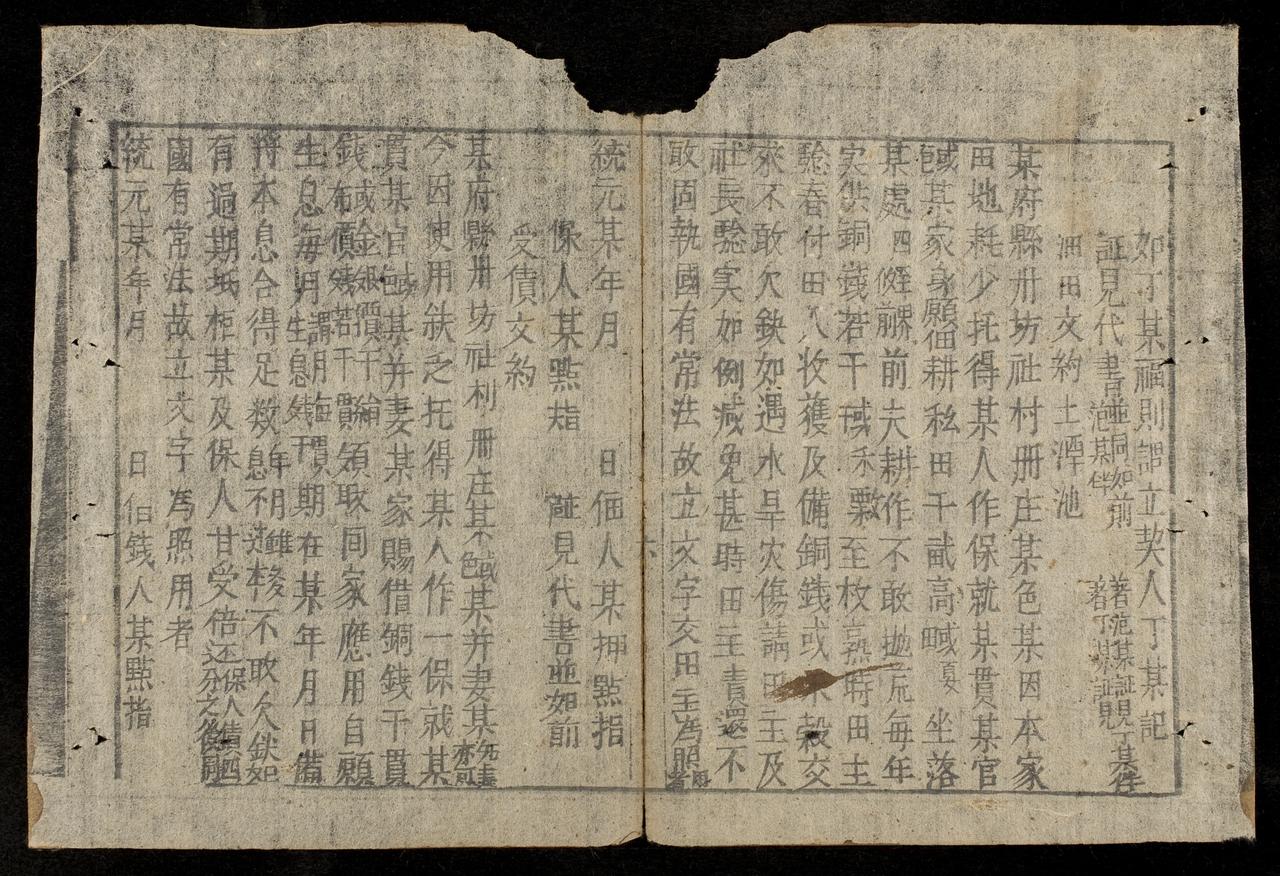 如丁某福則謂立契人丁某記
証見代書並同如前 著范某証見丁某伴
范某伴 著丁某
佃田文約土潭池
某府縣州坊社村冊庄某色某因本家
田地耗少托得某人作保就某貫某官
或某家身願佃耕私田千畝高或夏坐落
某處四至前界前夫耕作不敢拋荒每年
实供銅錢若干或禾粟至枚熟時田主
驗春付田人收穫及備銅錢或禾穀交
來不敢欠缺如遇水旱灾傷請田主及
社長驗实如例減免甚時田主責還不
敢固執國有常法故立文字交田主為照用者
統元某年月 日佃人某押點指
保人某點指 証見代書並如前
受債文約
某府縣州坊社利冊庄某色或某并妻某先妻亦可
今因使用缺乏托得某人作一保就某
貫某官或某并妻某家賜借銅錢干貫
錢或金銀價干 領取回家應用自願
布價錢若干貫
生息每月謂朋每貫期在某年月日備
生息錢干
將本息合得足数息不達本不敢欠缺如
年月雖
有過期抵柜某及保人甘受倍还保人債四
分之
國有常法故立文字為照用者
統元某年月 日佃錢人某點指
六